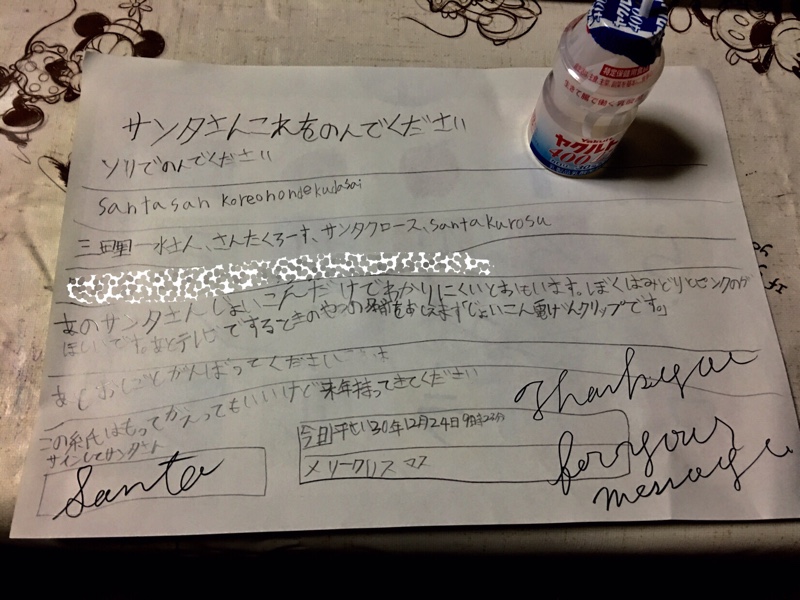 サンタさんこれをのんでください
ソリでのんでください
Santasan Koreonondekudasai
三田里一水さん、さんたくろーす、サンタクロース、santakurosu
あのサンタさんじょいこんだけでわかりにくいとおもいます。ぼくはみどりとピンクのが
ほしいです。あとテレビでするときのやつの名前をおしえます「じょいこん電げんクリップです。」
あしおしごとがんばってください
この糸氏はもってかえってもいいけど来年持ってきてください
サインしてサンタさん
Santa
今日平せい30年12月24日9時23分
メリークリスマス
Thank you
for your
message
ヤクルト
400